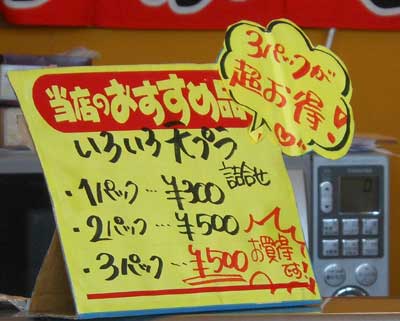 3パックが
超お得!
当店のおすすめ品
いろいろ天プラ
詰合せ
・1パック…¥300
・2パック…¥500
・3パック…¥500
お買得
です!